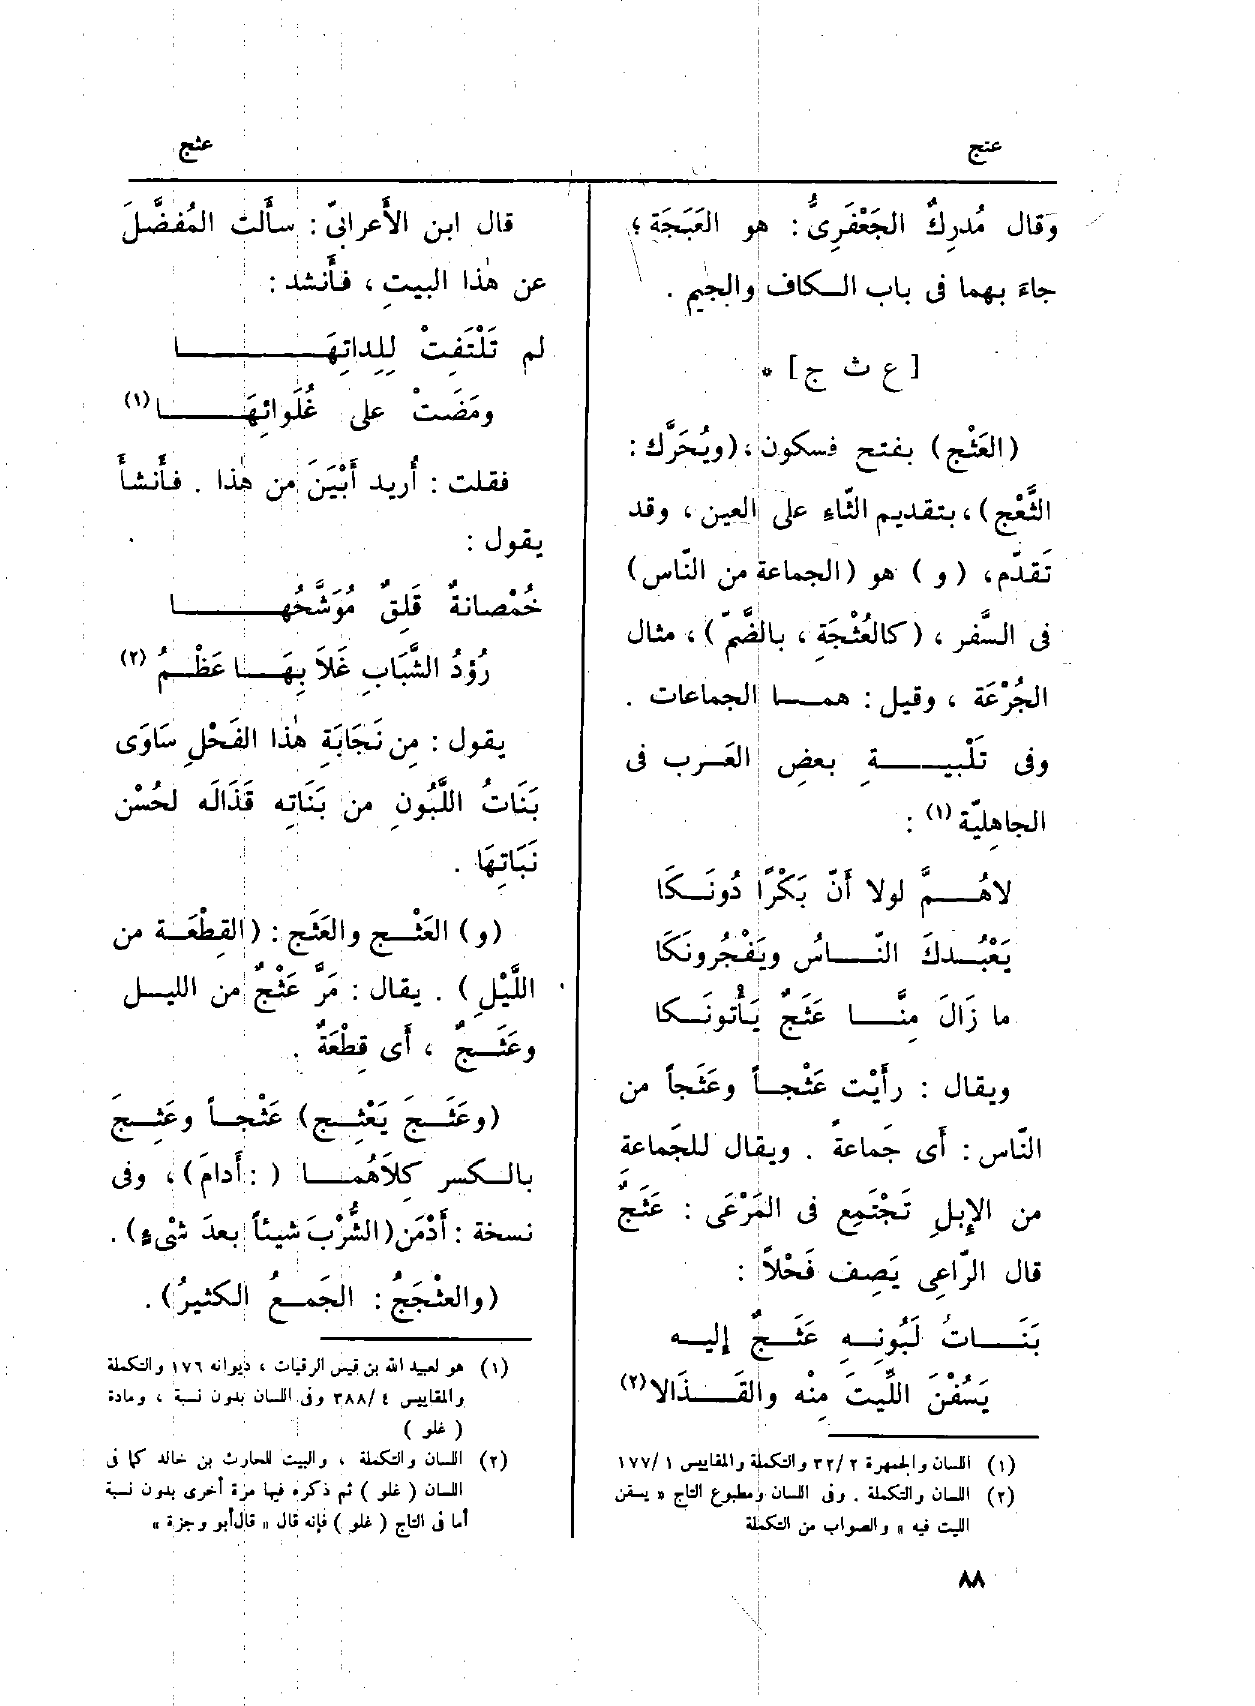 عثج
عثج
وقال مُدرِكٌ الجَعْفَرِىُّ : هو العَبَجَة ؛
جاءَ بهما فى باب الكاف والجيم .
[ ع ث ج ] *
(العَثْج) بفتح فسكون ، (ويُحَرَّك :
الثَّعْج) ، بتقديم الثّاءِ على العين ، وقد
تَقدّم، ( و ) هو (الجماعة من النّاس)
فى السَّفر ، (كالعُثْجَةِ ، بالضَّمّ) ، مثال
الجُرْعَة ، وقيل : همـا الجماعات .
وفى تَلْبيـةِ بعضِ العَـرب فى
الجاهِليّة (١) :
لاهُـمَّ لولا أَنّ بَكْرًا دُونَـكَا
يَعْبُـدكَ النّـاسُ ويَفْجُرونَكَا
ما زَالَ مِنَّـا عَثَجٌ يَأْتونَـكا
ويقال : رأَيْت عَثْجـاً وعَثَجاً من
النّاس : أَى جَماعةً . ويقال للجَماعةِ
من الإِبلِ تَجْتَمِع فى المَرْعَى : عَثَجٌ
قال الرّاعِى يَصِف فَحْلاً :
بَنَـاتُ لَبُونِـهِ عَثَـجٌ إِليـه
يَسُفْنَ اللِّيتَ مِنْه والقَـذَالا(٢)
(١) اللسان والجمهرة ٢ /٣٢ والتكملة والمقاييس ١ /١٧٧
(٢) اللسان والتكملة . وفى اللسان ومطبوع التاج « يسفن
الليت فيه » والصواب من التكملة
قال ابن الأَعرابىّ : سأَلت المُفضَّلَ
عن هٰذا البيتِ ، فأَنشد :
لم تَلْتَفِتْ لِلِداتِهَـا
ومَضَتْ على غُلَوائِهَـا(١)
فقلت : أُريد أَبْيَنَ من هٰذا . فأَنشأَ
يقول :
خُمْصانةٌ قَلِقٌ مُوَشَّحُهـا
رُؤدُ الشَّبَابِ غَلاَ بِهَـا عَظْـمُ (٢)
يقول : مِن نَجَابَةِ هٰذا الفَحْلِ سَاوَى
بَنَاتُ اللَّبُونِ من بَنَاتِه قَذَالَه لحُسْن
نَبَاتِهَا .
(و) العَثْـج والعَثَج : (القِطْعَـة من
اللَّيْلِ) . يقال : مَرَّ عَثْجٌ من الليـل
وعَثَـجٌ ، أَى قِطْعَةٌ .
(وعَثَـجَ يَعْثِـج) عَثْجـاً وعَثِـجَ
بالـكسر كِلاَهُمـا ( : أَدامَ) ، وفى
نسخة : أَدْمَن (الشُّرْبَ شيئاً بعدَ شْىءٍ) .
(والعثْجَجُ : الجَمـعُ الكثيرُ) .
(١) هو لعبيد الله بن قيس الرقيات ، ديوانه ١٧٦ والتكملة
والمقاييس ٤ /٣٨٨ وفى اللسان بدون نسبة ، ومادة
( غلو )
(٢) اللسان والتكملة ، والبيت للحارث بن خالد كما فى
اللسان ( غلو ) ثم ذكره فيها مرة أخرى بدون نسبة
أما فى التاج ( غلو ) فإنه قال « قال أبو وجزة »
٨٨